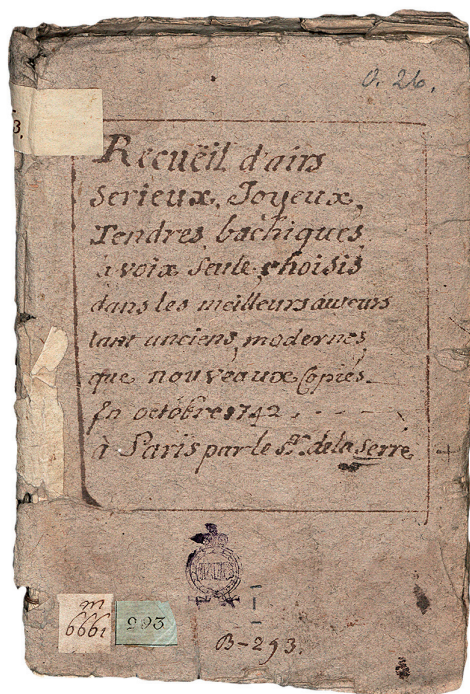 O. 26.
3.
Recuëil d'airs
serieux, Joyeux,
Tendres, bachiques
à voix seule, choisis
dans les meilleurs auteurs
tant anciens, modernes,
que nouveaux Copiés
En octobre 1742.
à Paris par le Sr. de la Serre
m
6661
293
B-293.